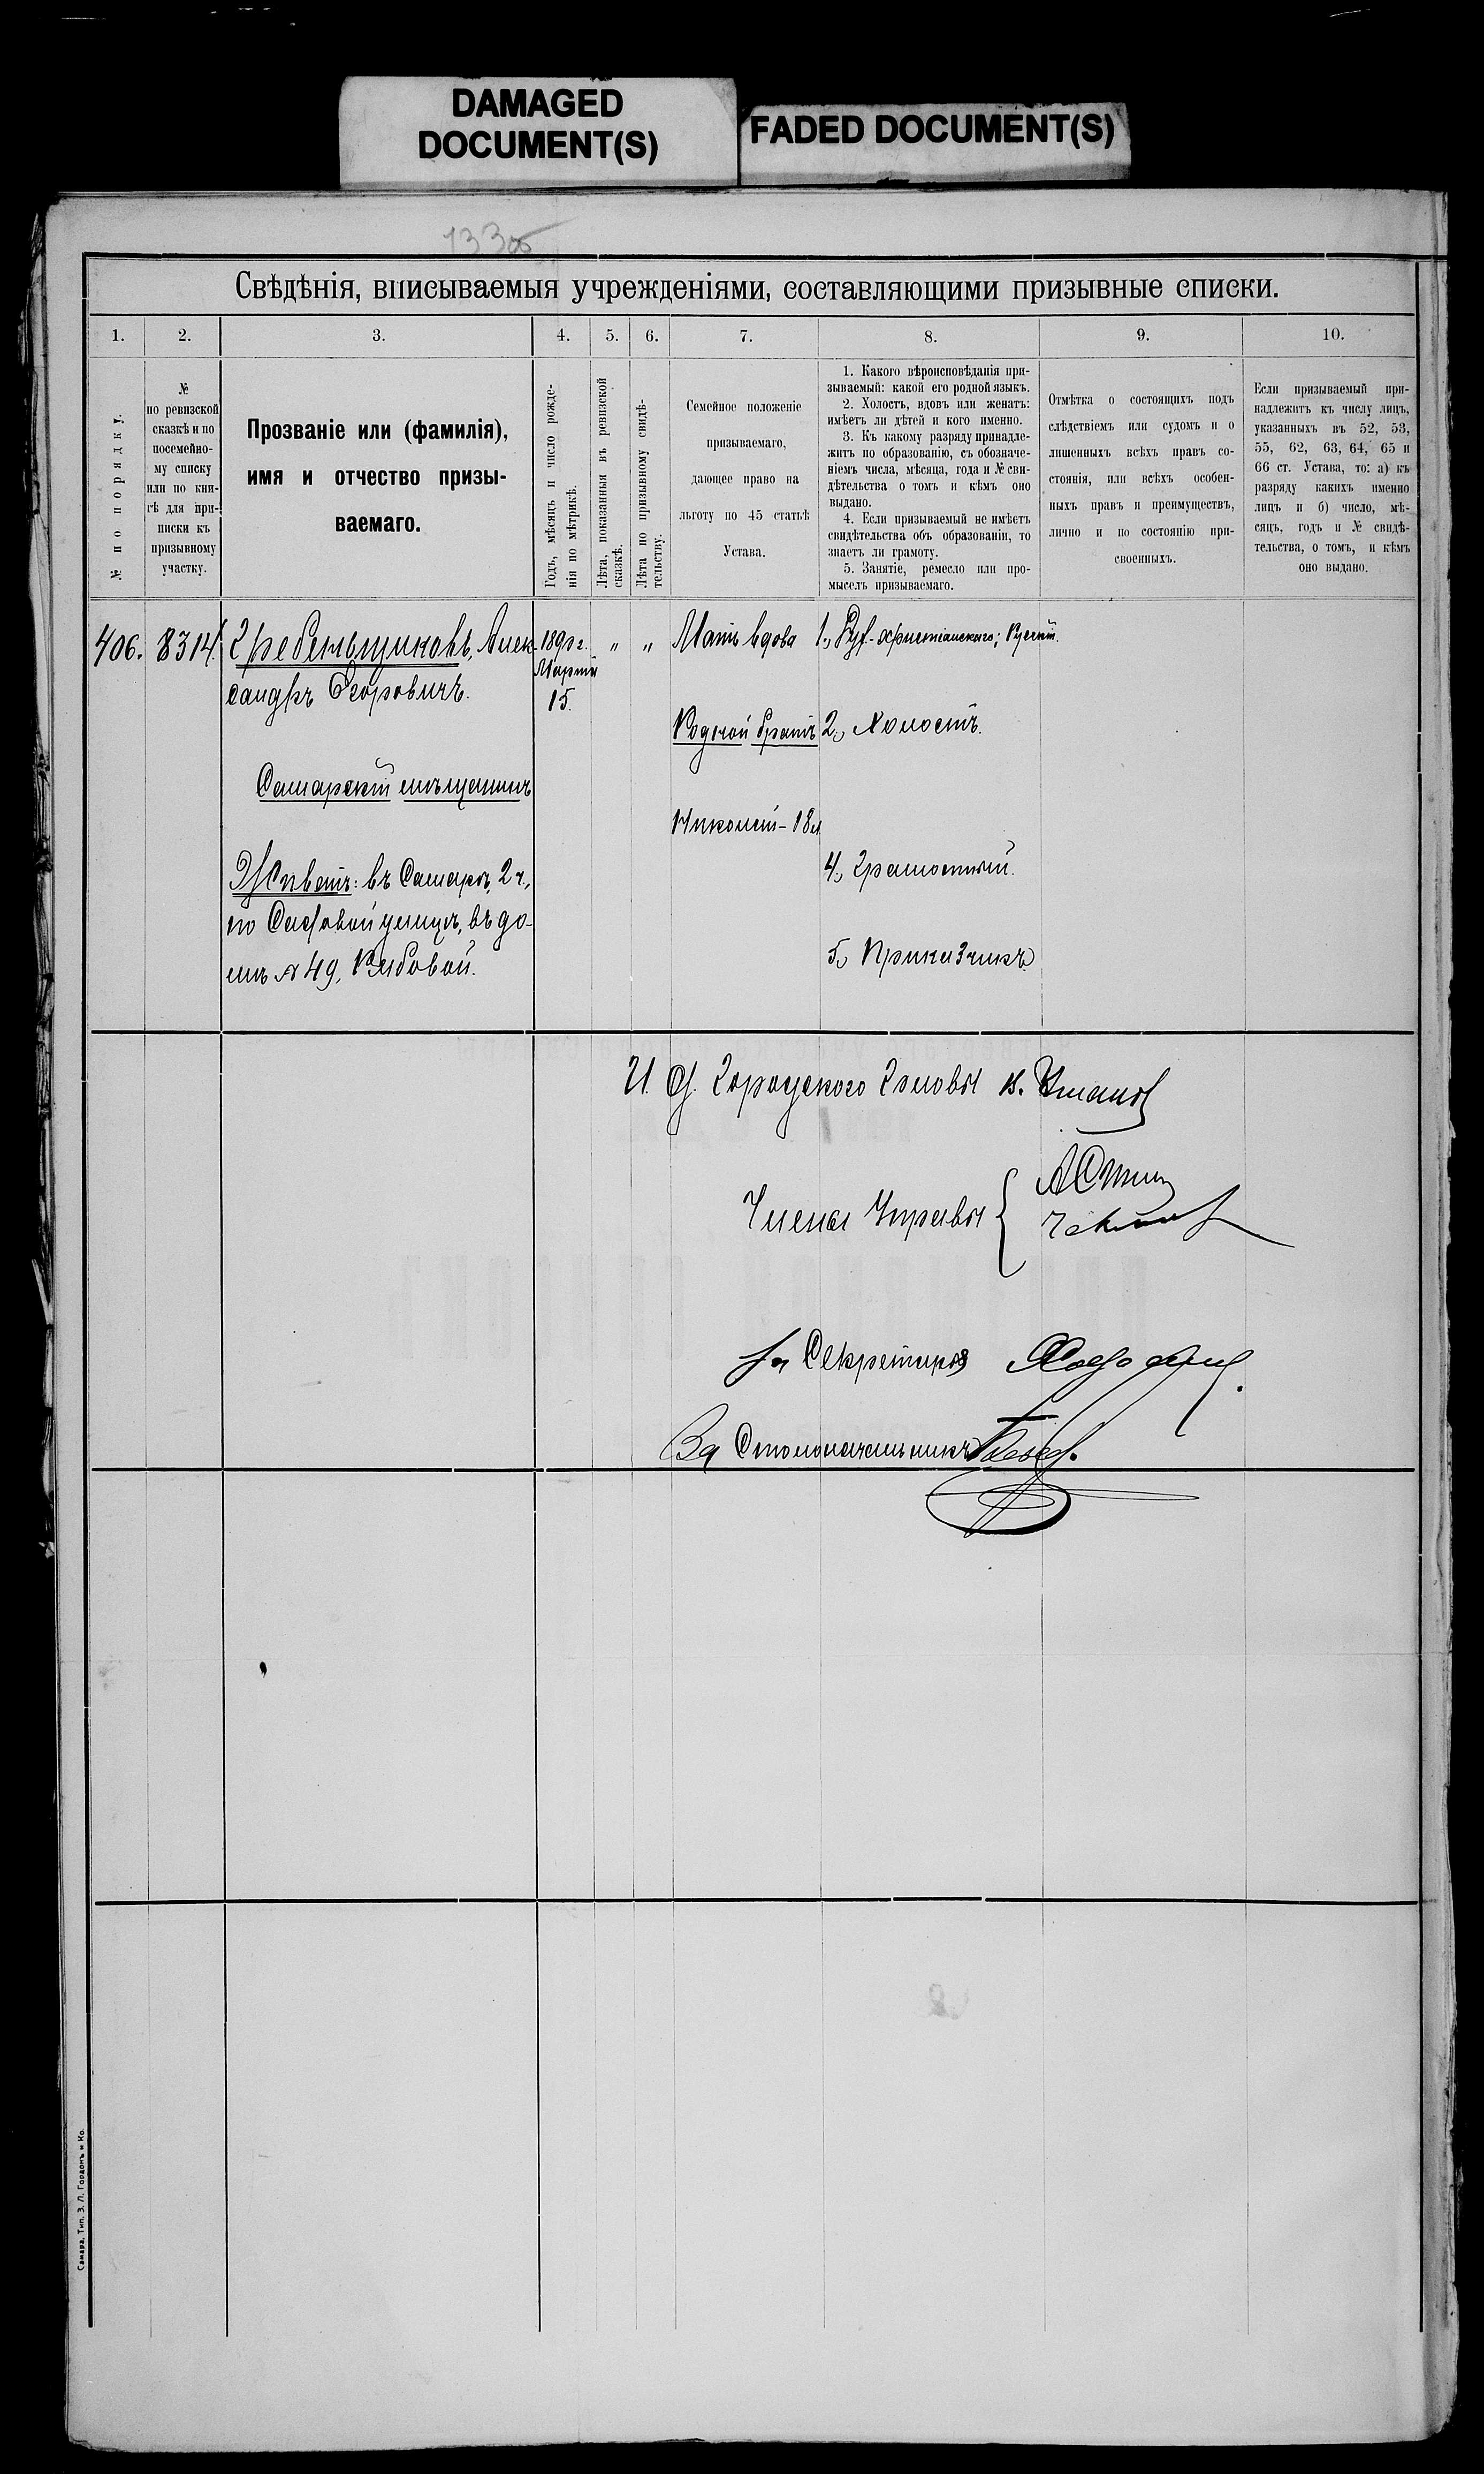 DAMAGED
DOCUMENT(S)
FADED DOCUMENT(S)
Свѣдѣнія, вписываемыя учрежденіями, составляющими призывные списки.
1.
2.
3.
4.
5.
6.
7.
8.
9.
10.
№ по порядку.
№
по ревизской
сказкѣ и по
посемейно-
му списку
или по кни-
гѣ для при-
писки къ
призывному
участку.
Прозваніе или (фамилія),
имя и отчество призы-
ваемаго.
Годъ, мѣсяцъ и число рожде-
нія по мѣтрикѣ.
Лѣта, показанныя въ ревизской
сказкѣ.
Лѣта по призывному свидѣ-
тельству.
Семейное положеніе
призываемаго,
дающее право на
льготу по 45 статьѣ
Устава.
1. Какого вѣроисповѣданія при-
зываемый: какой его родной языкъ.
2. Холостъ, вдовъ или женатъ:
имѣетъ ли дѣтей и кого именно.
3. Къ какому разряду принадле-
житъ по образованію, съ обозначе-
ніемъ числа, мѣсяца, года и № сви-
дѣтельства о томъ и кѣмъ оно
выдано.
4. Если призываемый не имѣетъ
свидѣтельства объ образованіи, то
знаетъ ли грамоту.
5. Занятіе, ремесло или про-
мыселъ призываемаго.
Отмѣтка о состоящихъ подъ
слѣдствіемъ или судомъ и о
лишенныхъ всѣхъ правъ со-
стоянія, или всѣхъ особен-
ныхъ правъ и преимуществъ,
лично и по состоянію при-
своенныхъ.
Если призываемый при-
надлежитъ къ числу лицъ,
указанныхъ въ 52, 53,
55, 62, 63, 64, 65 и
66 ст. Устава, то: а) къ
разряду какихъ именно
лицъ и б) число, мѣ-
сяцъ, годъ и № свидѣ-
тельства, о томъ, и кѣмъ
оно выдано.
406.
8314.
Гребеньщиковъ, Алек-
сандръ Егоровичъ.
Самарскій мѣщанинъ
Живетъ: въ Самарѣ, 2 ч.,
по Садовой улицѣ, въ до-
мѣ № 49,
1890 г.
Марта
15.
"
"
Мать вдова
Родной братъ
Николай - 18 л.
1., христіанскаго; Русскій.
2., Холостъ.
4., Грамотный.
5., Приказчикъ
И. д. Городского Головы
Члены Управы
За Секретаря
За Столоначальникъ
Самара, Тип. З. Л. Гордонъ и Ко.